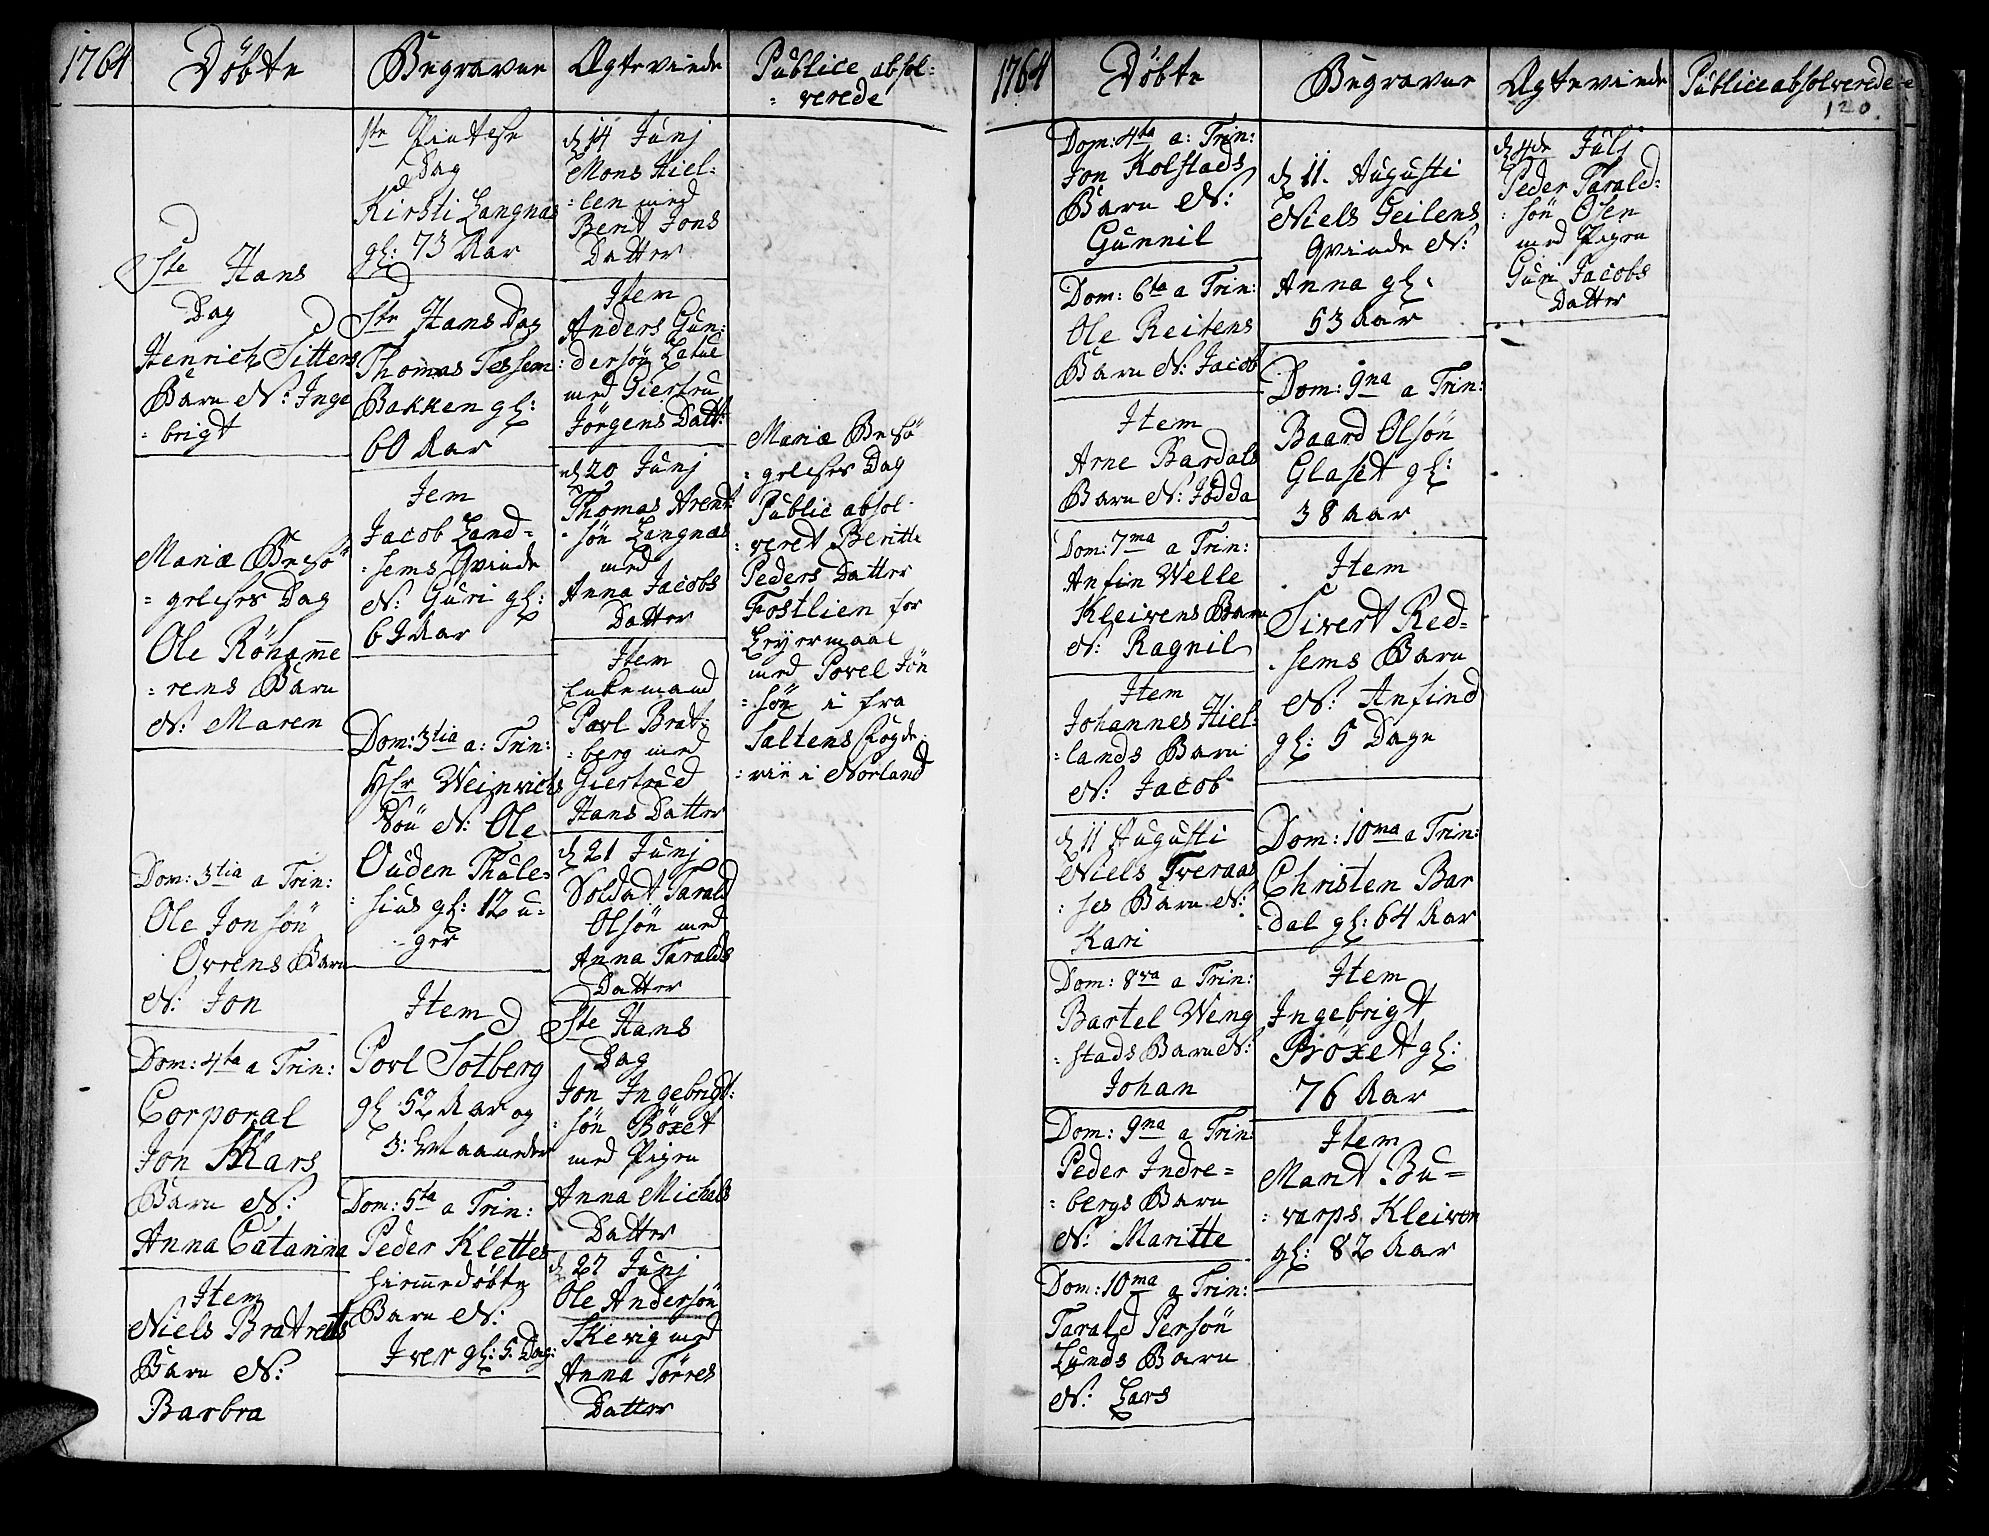 1764
Döbte
Ste Hans
Dag
Henrich Sitters
Barn N: Inge
= brigt
Mariæ Besö
= gelses Dag
Ole Röhamme
= rens Barn
N: Maren
Dom: 3tia a Trin:
Ole Jonsön
Ovrens Barn
N: Jon
Dom: 4ta a Trin:
Corporal
Jon Skars
Barn N:
Anna Catarina
Item
Niels Bratrets
Barn N:
Barbra
Begravne
1te Pintese
Dag
Kirsti Langnas
gl: 73 Aar
Ste Hans Dag
Thomas Tessem
Bakken gl:
60 Aar
Jem
Jacob Land=
= sems Qvinde
N: Guri gl:
69 Aar
Dom: 3tia a: Trin:
Hr Weinvichs
Sön N: Ole
Ouden Thule=
= sius gl: 12 u=
= ger
Item
Povl Solberg
gl: 52 Aar og
3: Maaneder
Dom: 5ta a Trin:
Peder Klettes
hiemmedöbte
Barn N:
Iver gl: 5 Dag:
Ægteviede
d 14 Junj
Mons Hiel=
= len med
Berit Jons
Datter
Item
Anders Gun=
= dersön
med Giertru
Jörgens Datt:
d 20 Junj
Thomas Arent
= sön Langnæs
med
Anna Jacobs
Datter
Item
Enkemand
Povl Brat=
= berg med
Giertrud
Hans Datter
d 21 Junj
Soldat Tarald
Olsön med
Anna Taralds
Datter
Ste Hans
Dag
Jon Ingebrigt=
= sön Böxet
med Pigen
Anna Michels
Datter
d 27 Junj
Ole Andersön
Skevig med
Anna Törres
Datter
Publice absol=
= verede
Mariæ Besö
= gelses Dag
Public absol=
= veret Beritte
Peders Datter
Fostlien for
Leyermaal
med Povel Jön
= sön i fra
Saltens Fogde=
= rie i Norland
1764
Döbte
Dom: 4ta a: Trin:
Jon Kolstads
Barn N:
Gunnil
Dom: 6ta a Trin:
Ole Reitens
Barn N: Jacob
Item
Arne Bardals
Barn N: Jödda
Dom: 7ma a Trin:
Anfin Welle
Kleivens Barn
N: Ragnil
Item
Johannes Hiel=
= lands Barn
N: Jacob
d 11 Augusti
Niels Tveraas
= ses Barn N:
Kari
Dom: 8va a Trin:
Bartel Weng
= stads Barn N:
Johan
Dom: 9na a Trin:
Peder Indre=
= bergs Barn
N: Maritte
Dom: 10ma a Trin:
Tarald Persön
Lunds Barn
N: Lars
Begravne
d 11. Augusti
Niels Geilens
Qvinde N:
Anna gl:
53 Aar
Dom: 9na a Trin:
Baard Olsön
Glaset gl:
38 Aar
Item
Sivert Red=
= sems Barn
N: Anfind
gl: 5 Dage
Dom: 10ma a Trin:
Christen Bar
= dal gl: 64 Aar
Item
Ingebrigt
Pröxet gl:
76 Aar
Item
Marit Bu=
= varps Kleiven
gl: 82 Aar
Ægteviede
d 4de Julj
Peder Tarald=
= sön Osen
med Pigen
Guri Jacobs
Datter
Publice absolverede
120.